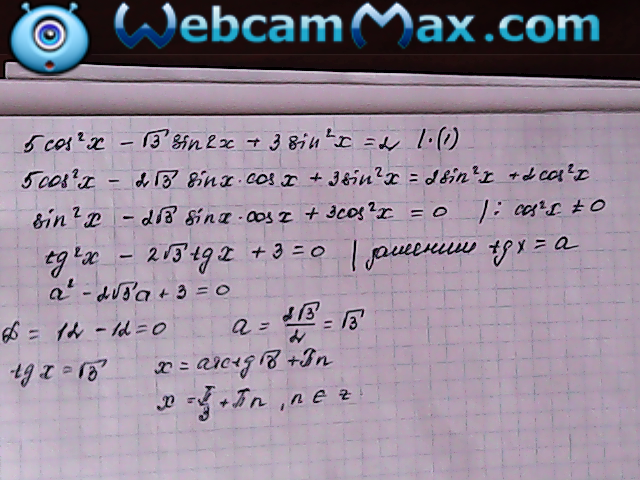 WebcamMax.com
5cos²x - √3 sin2x + 3sin²x = 2 | · (1)
5cos²x - 2√3 sinx·cosx + 3sin²x = 2sin²x + 2cos²x
sin²x - 2√3 sinx·cosx + 3cos²x = 0 | : cos²x ≠ 0
tg²x - 2√3 tgx + 3 = 0 | заменим tgx = a
a² - 2√3a + 3 = 0
D = 12 - 12 = 0 a = 2√3/2 = √3
tgx = √3 x = arctg√3 + πn
x = π/3 + πn, n ∈ z